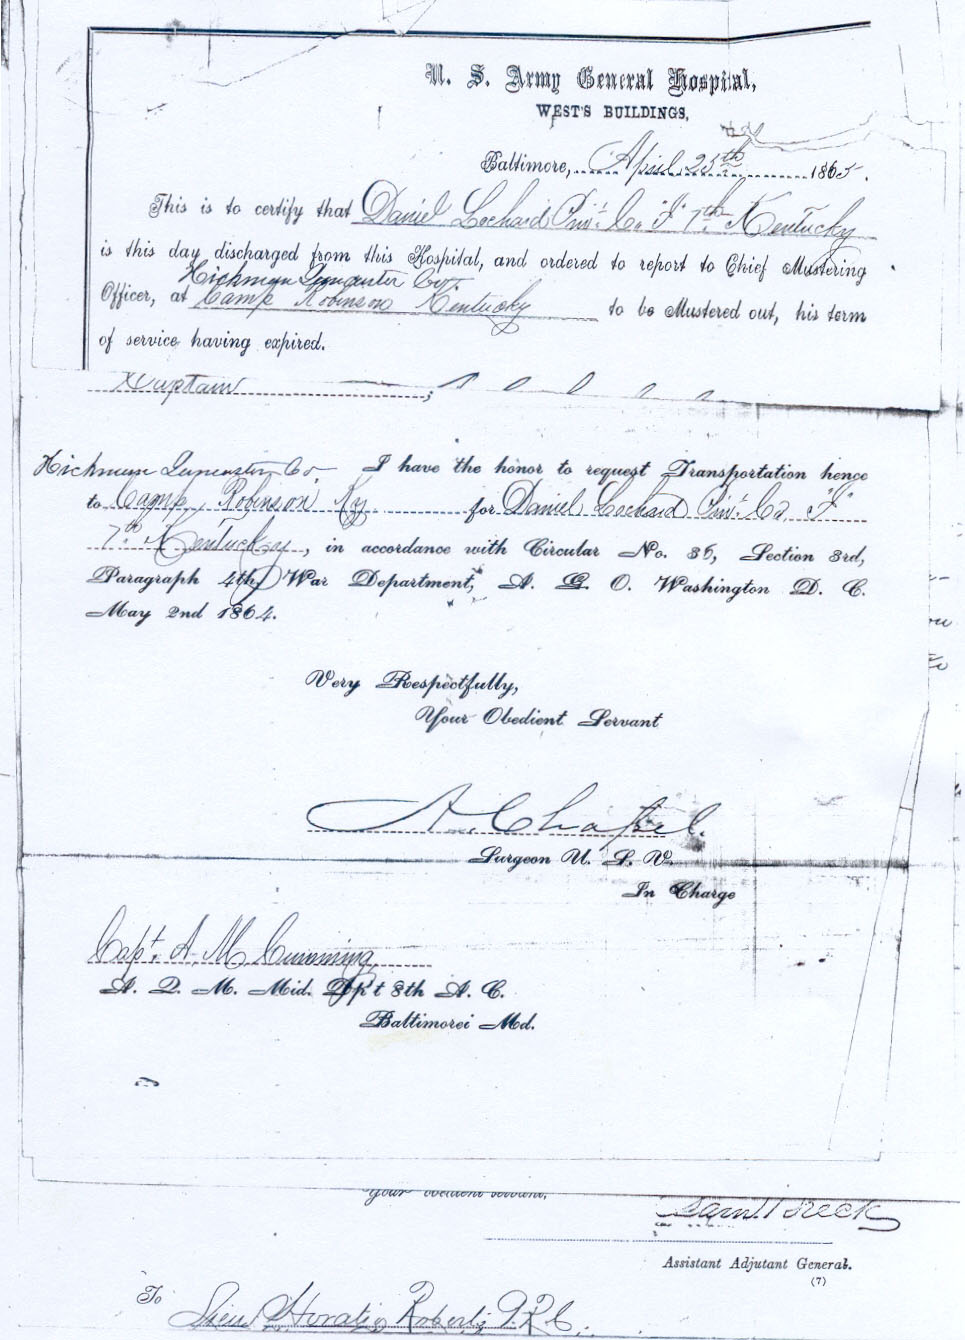 U. S. Army General Hospital,
WEST'S BUILDINGS,
Baltimore, April 25th 1865.
This is to certify that Daniel Lochard Priv. Co. "F" 7th Kentucky
is this day discharged from this Hospital, and ordered to report to Chief Mustering
Hickman Lancaster Co.
Officer, at Camp Robinson Kentucky to be Mustered out, his term
of service having expired.
Captain
Hickman Lancaster Co. I have the honor to request Transportation hence
to Camp Robinson Ky for Daniel Lochard Priv. Co "F"
7th Kentucky, in accordance with Circular No. 35, Section 3rd,
Paragraph 4th, War Department, A. G. O. Washington D. C.
May 2nd 1864.
Very Respectfully,
Your Obedient Servant
A. Chapel.
Surgeon U. S. V.
In Charge
Capt. A. M. Cumming
A. Q. M. Mid. Dp't 8th A. C.
Baltimore Md.
Your obedient servant,
Sam. Breck
Assistant Adjutant General.
(7)
To
Horatio Roberts